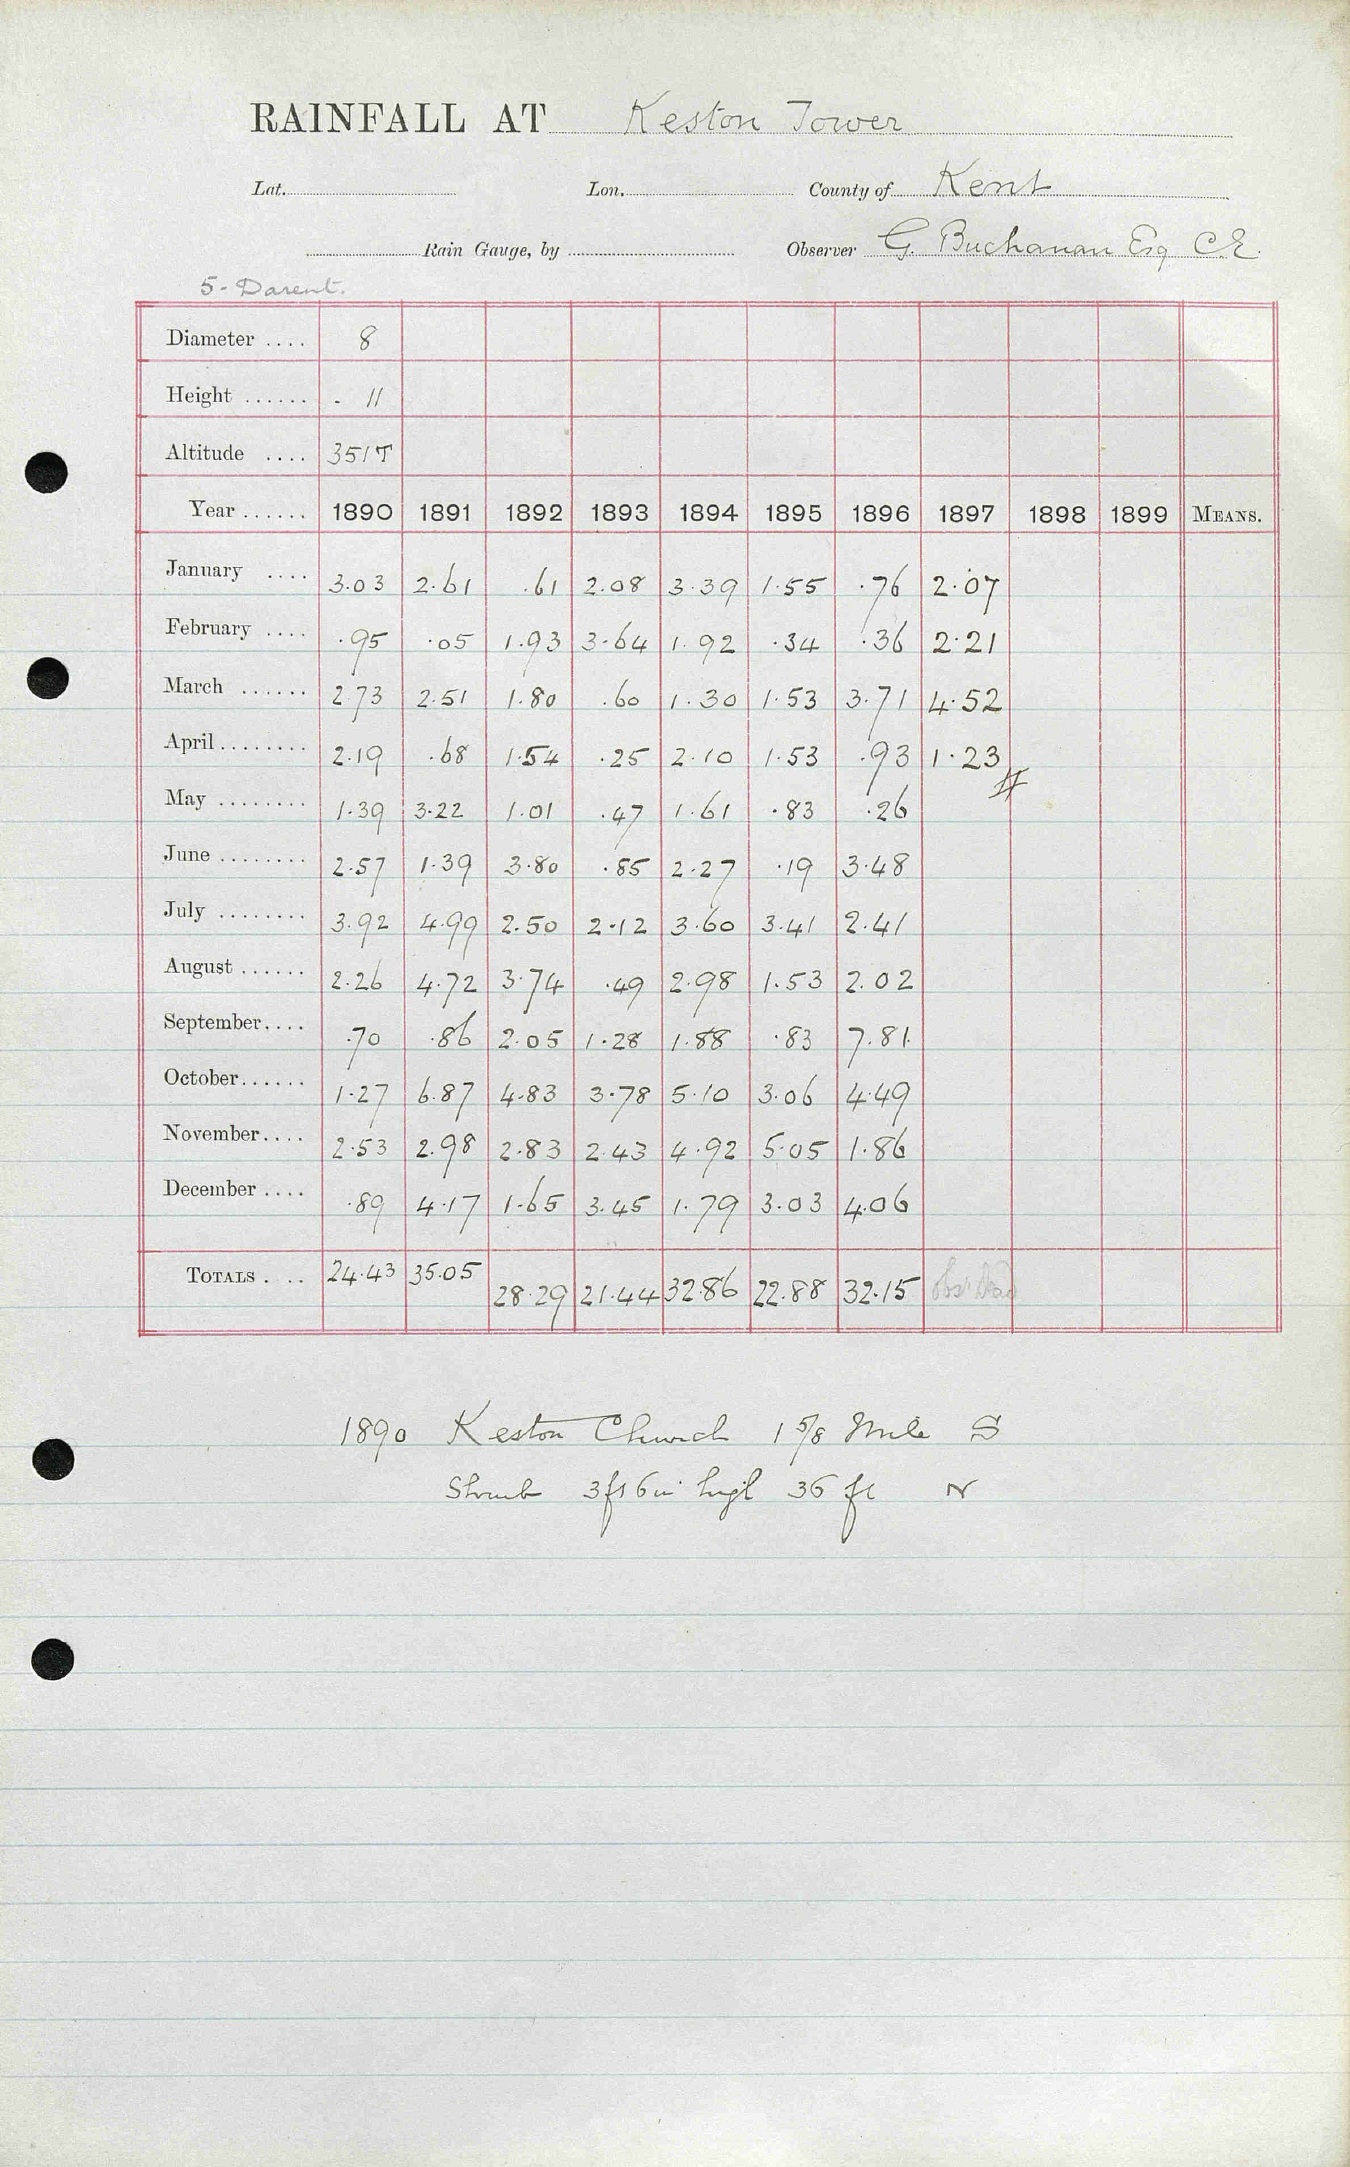 RAINFALL AT Keston Tower
Lat. Lon. County of Kent
Rain Gauge, by Observer G. Buchanan Esq C.E.
5 - Darent.
Diameter .... 8
Height ...... - 11
Altitude .... 351T
Year ...... 1890 1891 1892 1893 1894 1895 1896 1897 1898 1899 MEANS.
January .... 3.03 2.61 .61 2.08 3.39 1.55 .76 2.07
February .... .95 .05 1.93 3.64 1.92 .34 .36 2.21
March ...... 2.73 2.51 1.80 .60 1.30 1.53 3.71 4.52
April ........ 2.19 .68 1.54 .25 2.10 1.53 .93 1.23
May ........ 1.39 3.22 1.01 .47 1.61 .83 .26
June ........ 2.57 1.39 3.80 .85 2.27 .19 3.48
July ........ 3.92 4.99 2.50 2.12 3.60 3.41 2.41
August ...... 2.26 4.72 3.74 .49 2.98 1.53 2.02
September .... .70 .86 2.05 1.28 1.88 .83 7.81
October ...... 1.27 6.87 4.83 3.78 5.10 3.06 4.49
November .... 2.53 2.98 2.83 2.43 4.92 5.05 1.86
December .... .89 4.17 1.65 3.45 1.79 3.03 4.06
TOTALS .... 24.43 35.05 28.29 21.44 32.86 22.88 32.15 obsr dead
1890 Keston Church 1 5/8 Mile S
Shrub 3ft 6in high 36 ft N